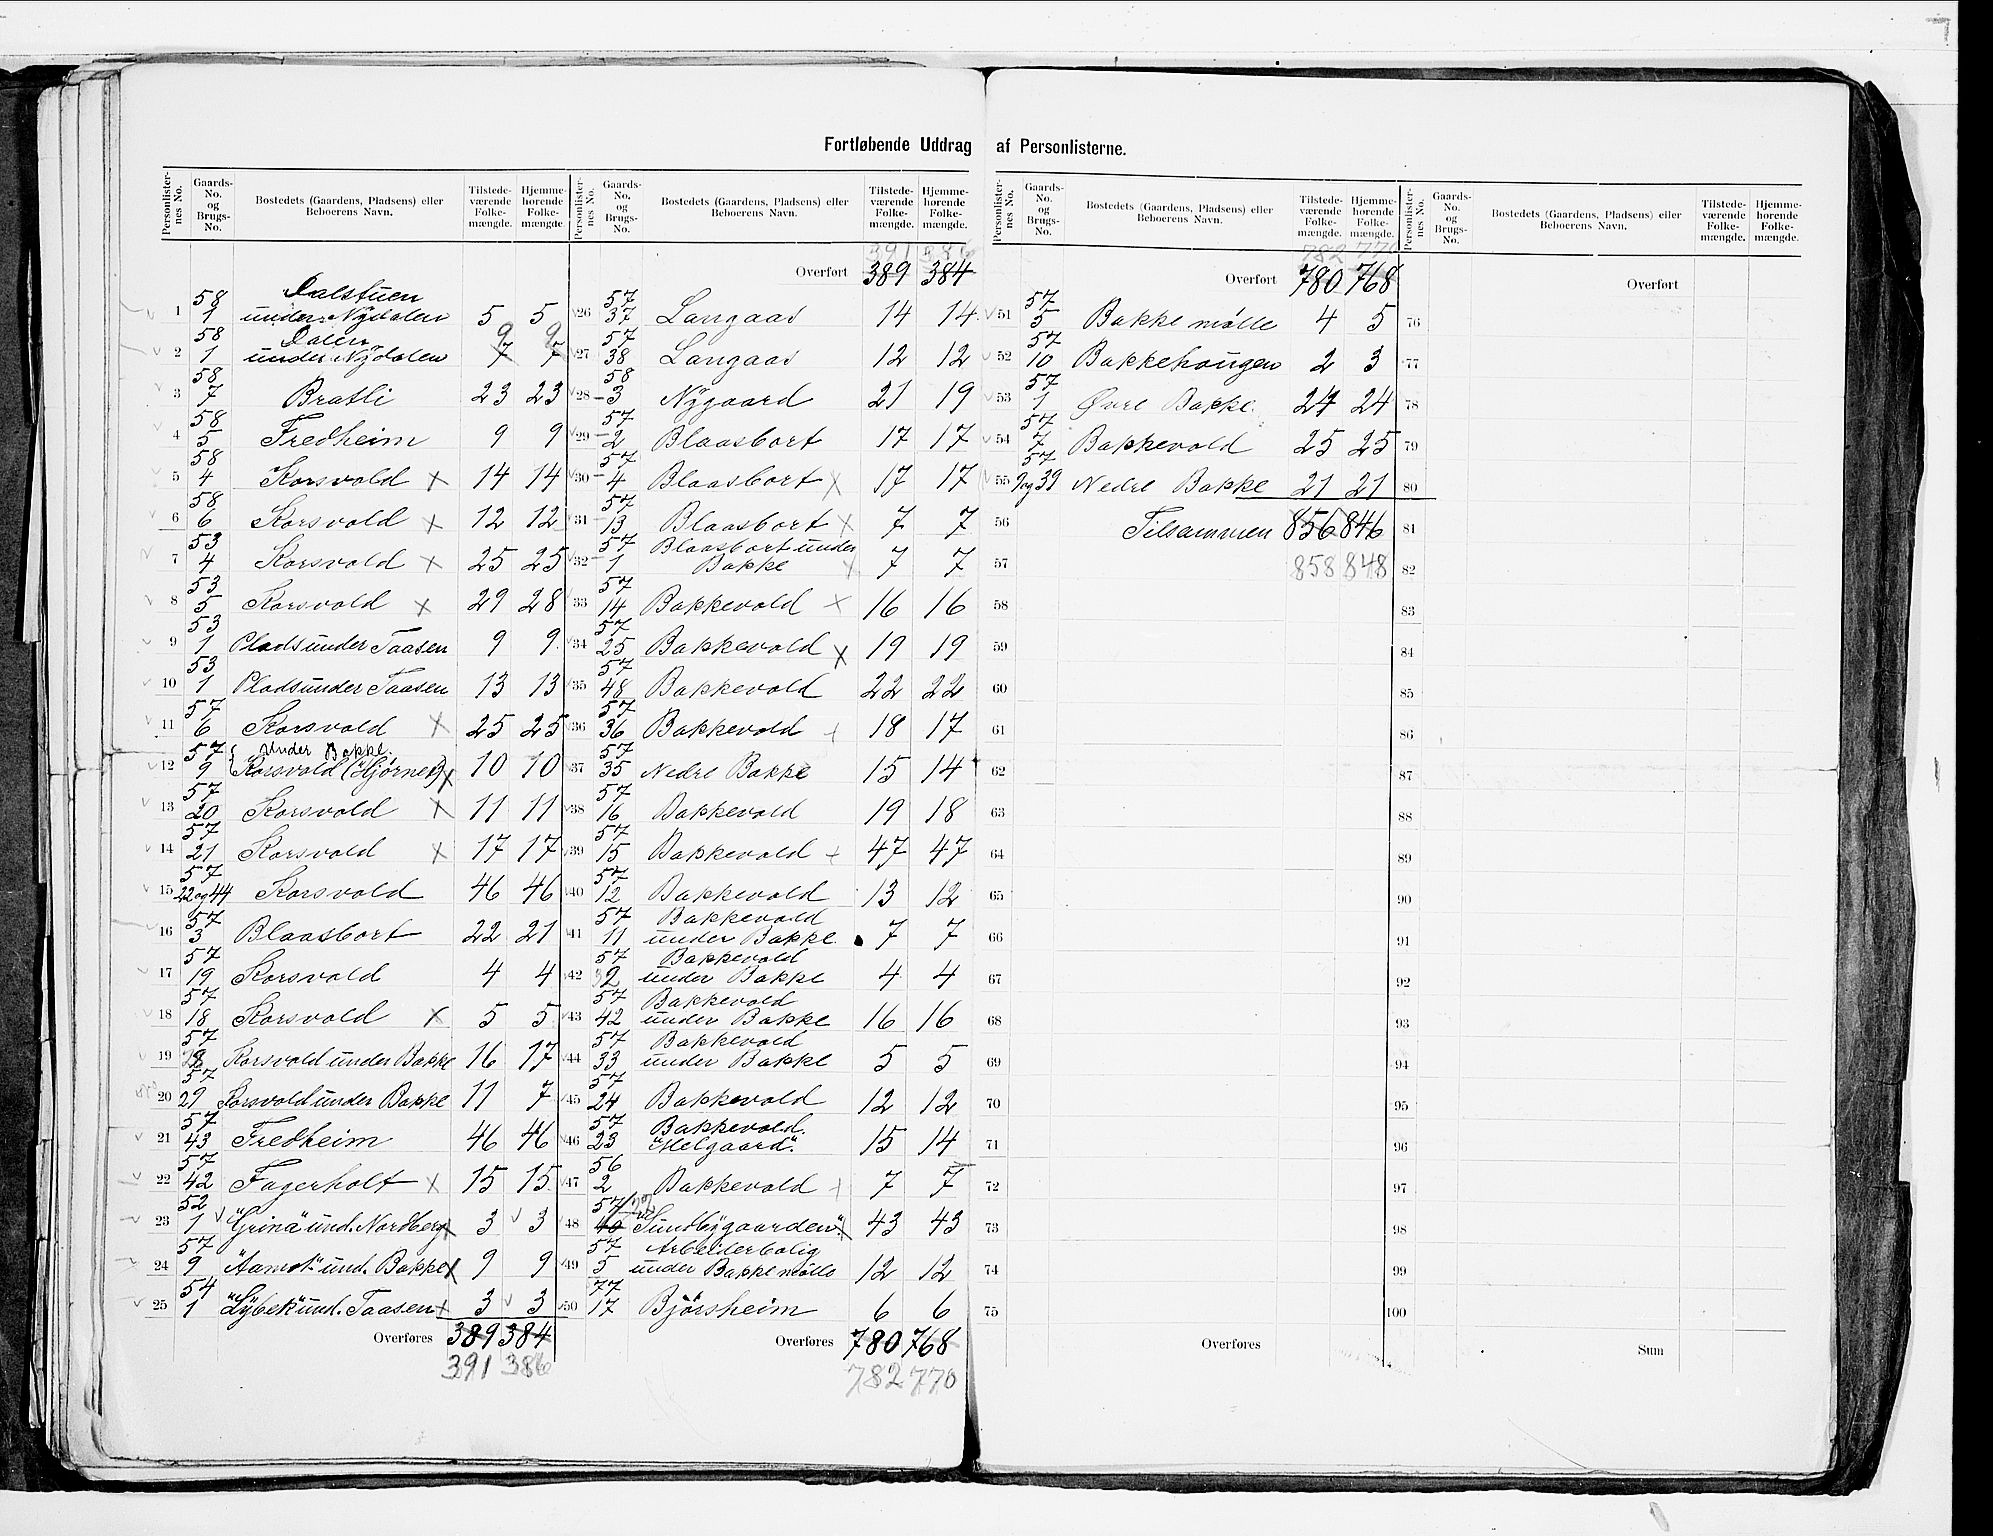 Fortløbende Uddrag af Personlisterne.
Personlister-nes No. Gaards-No. og Brugs-No. Bostedets (Gaardens, Pladsens) eller Beboerens Navn. Tilstede-værende Folke-mængde. Hjemme-hørende Folke-mængde.
1 58 1 Dalstuen under Nydalen 5 5
2 58 1 Dalen under Nydalen 7 7 9 9
3 58 7 Bratli 23 23
4 58 5 Fredheim 9 9
5 58 4 Korsvold x 14 14
6 58 6 Korsvold x 12 12
7 53 4 Korsvold x 25 25
8 53 5 Korsvold x 29 28
9 53 1 Plads under Taasen 9 9
10 53 1 Plads under Taasen 13 13
11 57 6 Korsvold x 25 25
12 57 9 Under Bakke. Korsvold (Hjørnet) x 10 10
13 57 20 Korsvold x 11 11
14 57 21 Korsvold x 17 17
15 57 22 og 44 Korsvold 46 46
16 57 3 Blaasbort 22 21
17 57 19 Korsvold 4 4
18 57 18 Korsvold x 5 5
19 57 Korsvold under Bakke 16 17
20 57 29 Korsvold under Bakke 11 7
21 57 43 Fredheim 46 46
22 57 42 Fagerholt x 15 15
23 52 1 "Grina" und. Nordberg x 3 3
24 57 9 "Aamot" und. Bakke x 9 9
25 54 1 "Lybek" und. Taasen x 3 3
Overføres 389 384
391 386
Personlister-nes No. Gaards-No. og Brugs-No. Bostedets (Gaardens, Pladsens) eller Beboerens Navn. Tilstede-værende Folke-mængde. Hjemme-hørende Folke-mængde.
391 386
Overført 389 384
26 57 37 Langaas 14 14
27 57 38 Langaas 12 12
28 58 3 Nygaard 21 19
29 57 2 Blaasbort 17 17
30 57 4 Blaasbort x 17 17
31 57 13 Blaasbort x 7 7
32 57 1 Blaasbort under Bakke x 7 7
33 57 14 Bakkevold x 16 16
34 57 25 Bakkevold x 19 19
35 57 48 Bakkevold 22 22
36 57 36 Bakkevold x 18 17
37 57 35 Nedre Bakke 15 14
38 57 16 Bakkevold 19 18
39 57 15 Bakkevold x 47 47
40 57 12 Bakkevold 13 12
41 57 11 Bakkevold under Bakke 7 7
42 57 32 Bakkevold under Bakke 4 4
43 57 42 Bakkevold under Bakke 16 16
44 57 33 Bakkevold under Bakke 5 5
45 57 24 Bakkevold 12 12
46 57 23 Bakkevold. "Helgaard". 15 14
47 56 2 Bakkevold x 7 7
48 57 40 "Sundbygaarden" x 43 43
49 57 5 Arbeiderbolig under Bakke mølle 12 12
50 77 17 Bjørsheim 6 6
Overføres 780 768
782 770
Personlister-nes No. Gaards-No. og Brugs-No. Bostedets (Gaardens, Pladsens) eller Beboerens Navn. Tilstede-værende Folke-mængde. Hjemme-hørende Folke-mængde.
782 770
Overført 780 768
51 57 5 Bakke mølle 4 5
52 57 10 Bakkehaugen 2 3
53 57 1 Øvre Bakke. 24 24
54 57 7 Bakkevold 25 25
55 57 7 og 39 Nedre Bakke 21 21
56 Tilsammen 856 846
57 858 848
58
59
60
61
62
63
64
65
66
67
68
69
70
71
72
73
74
75
Overføres
Personlister-nes No. Gaards-No. og Brugs-No. Bostedets (Gaardens, Pladsens) eller Beboerens Navn. Tilstede-værende Folke-mængde. Hjemme-hørende Folke-mængde.
Overført
76
77
78
79
80
81
82
83
84
85
86
87
88
89
90
91
92
93
94
95
96
97
98
99
100
Sum